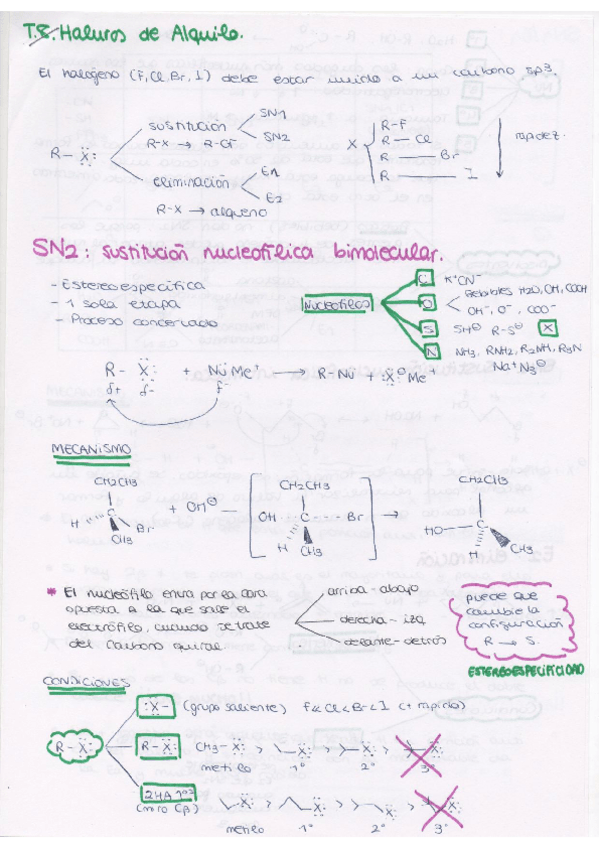 T.8. Haluros de Alquilo.
El halógeno (F, Cl, Br, I) debe estar unido a un carbono sp3.
sustitución
SN1
SN2
R-X → R-
R-X:
eliminación
E1
E2
R-X → alqueno
X
R-F
R-Cl
R-Br
R-I
rapidez
SN2: sustitución nucleofílica bimolecular.
- Estereoespecífica
- 1 sola etapa
- Proceso concertado
Nucleófilos
C K⁺CN⁻
O Flexibles H2O, OH, COOH
OH⁻, O⁻, COO⁻
S SH⊖ R-S⊖ X
N NH3, RNH2, R2NH, R3N
Na⁺N3⊖
R-X: + Nü Me⁺ → R-Nü + :X:⊖ Me⁺
δ+ δ- δ-
MECANISMO
CH2CH3
C
H
Br
CH3
+ OH⊖ →
CH2CH3
OH C Br
H CH3
→
CH2CH3
HO-C
H
CH3
* El nucleófilo entra por la cara
opuesta a la que sale el
electrófilo, cuando se trate
del carbono quiral
arriba - abajo
derecha - izq
delante - detrás
puede que
cambie la
configuración
R → S.
ESTEREOESPECIFICIDAD
CONDICIONES
:X- (grupo saliente) F<Cl<Br<I (+ rápido)
R-X:
R-X: CH3-X: > X: > X: > X:
metilo 1º 2º 3º
(miro Cβ) X: > X: > X: > X:
metilo 1º 2º 3º